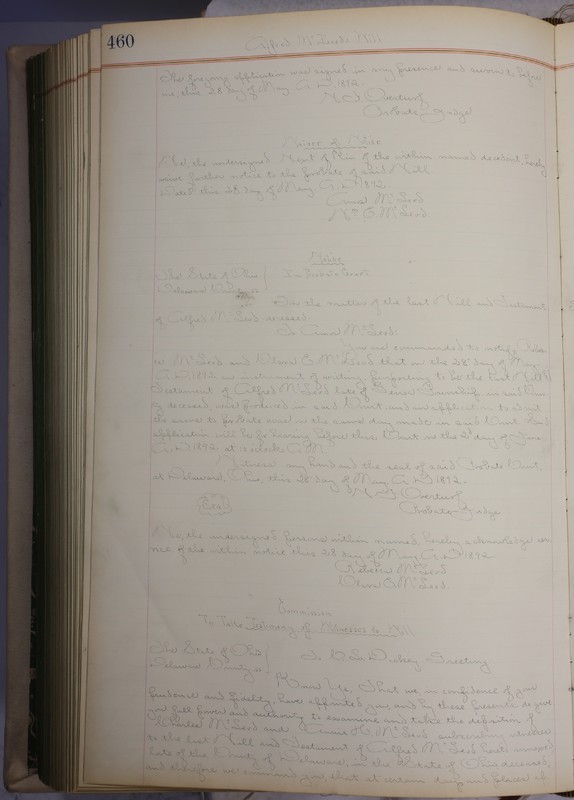 460
Alfred McLeod's Will
The foregoing application was signed in my presence and sworn to before
me, this 28 day of May A.D. 1892
Probate Judge
Waiver of Notice
We, the undersigned Next of Kin of the within named decedent, hereby
waive further notice to the probate of said Will
Dated this 28 day of May, A.D. 1892.
McLeod
McLeod
Notice
The State of Ohio
Delaware County ss
In Probate Court
In the matter of the last Will and Testament
of Alfred McLeod deceased.
To McLeod:
You are commanded to notify
McLeod and McLeod that on the 28 day of May
A.D. 1892 an instrument of writing, purporting to be the last Will
Testament of Alfred McLeod late of Township, in said
deceased, was produced in said Court, and an application to admit
the same to probate was on the same day made in said Court. Said
application will be for hearing before this Court on the day of June
A.D. 1892 at o'clock A.M.
Witness my hand and the seal of said Probate Court
at Delaware, Ohio, this 28 day of May A.D. 1892.
Seal
Probate Judge
We, the undersigned persons within named, hereby acknowledge
of the within notice this 28 day of May A.D. 1892
Rebecca McLeod
McLeod.
Commission
To Take Testimony of Witnesses to Will
The State of Ohio
Delaware County ss
To Dickey Greeting
Know Ye, That we in confidence of your
prudence and fidelity, have appointed you, and by these presents do give
you full power and authority to examine and take the deposition of
Charles McLeod and McLeod subscribing witnesses
to the last Will and Testament of Alfred McLeod hereto annexed
late of the County of Delaware, in the State of Ohio deceased;
and therefore we command you, that at certain days and places